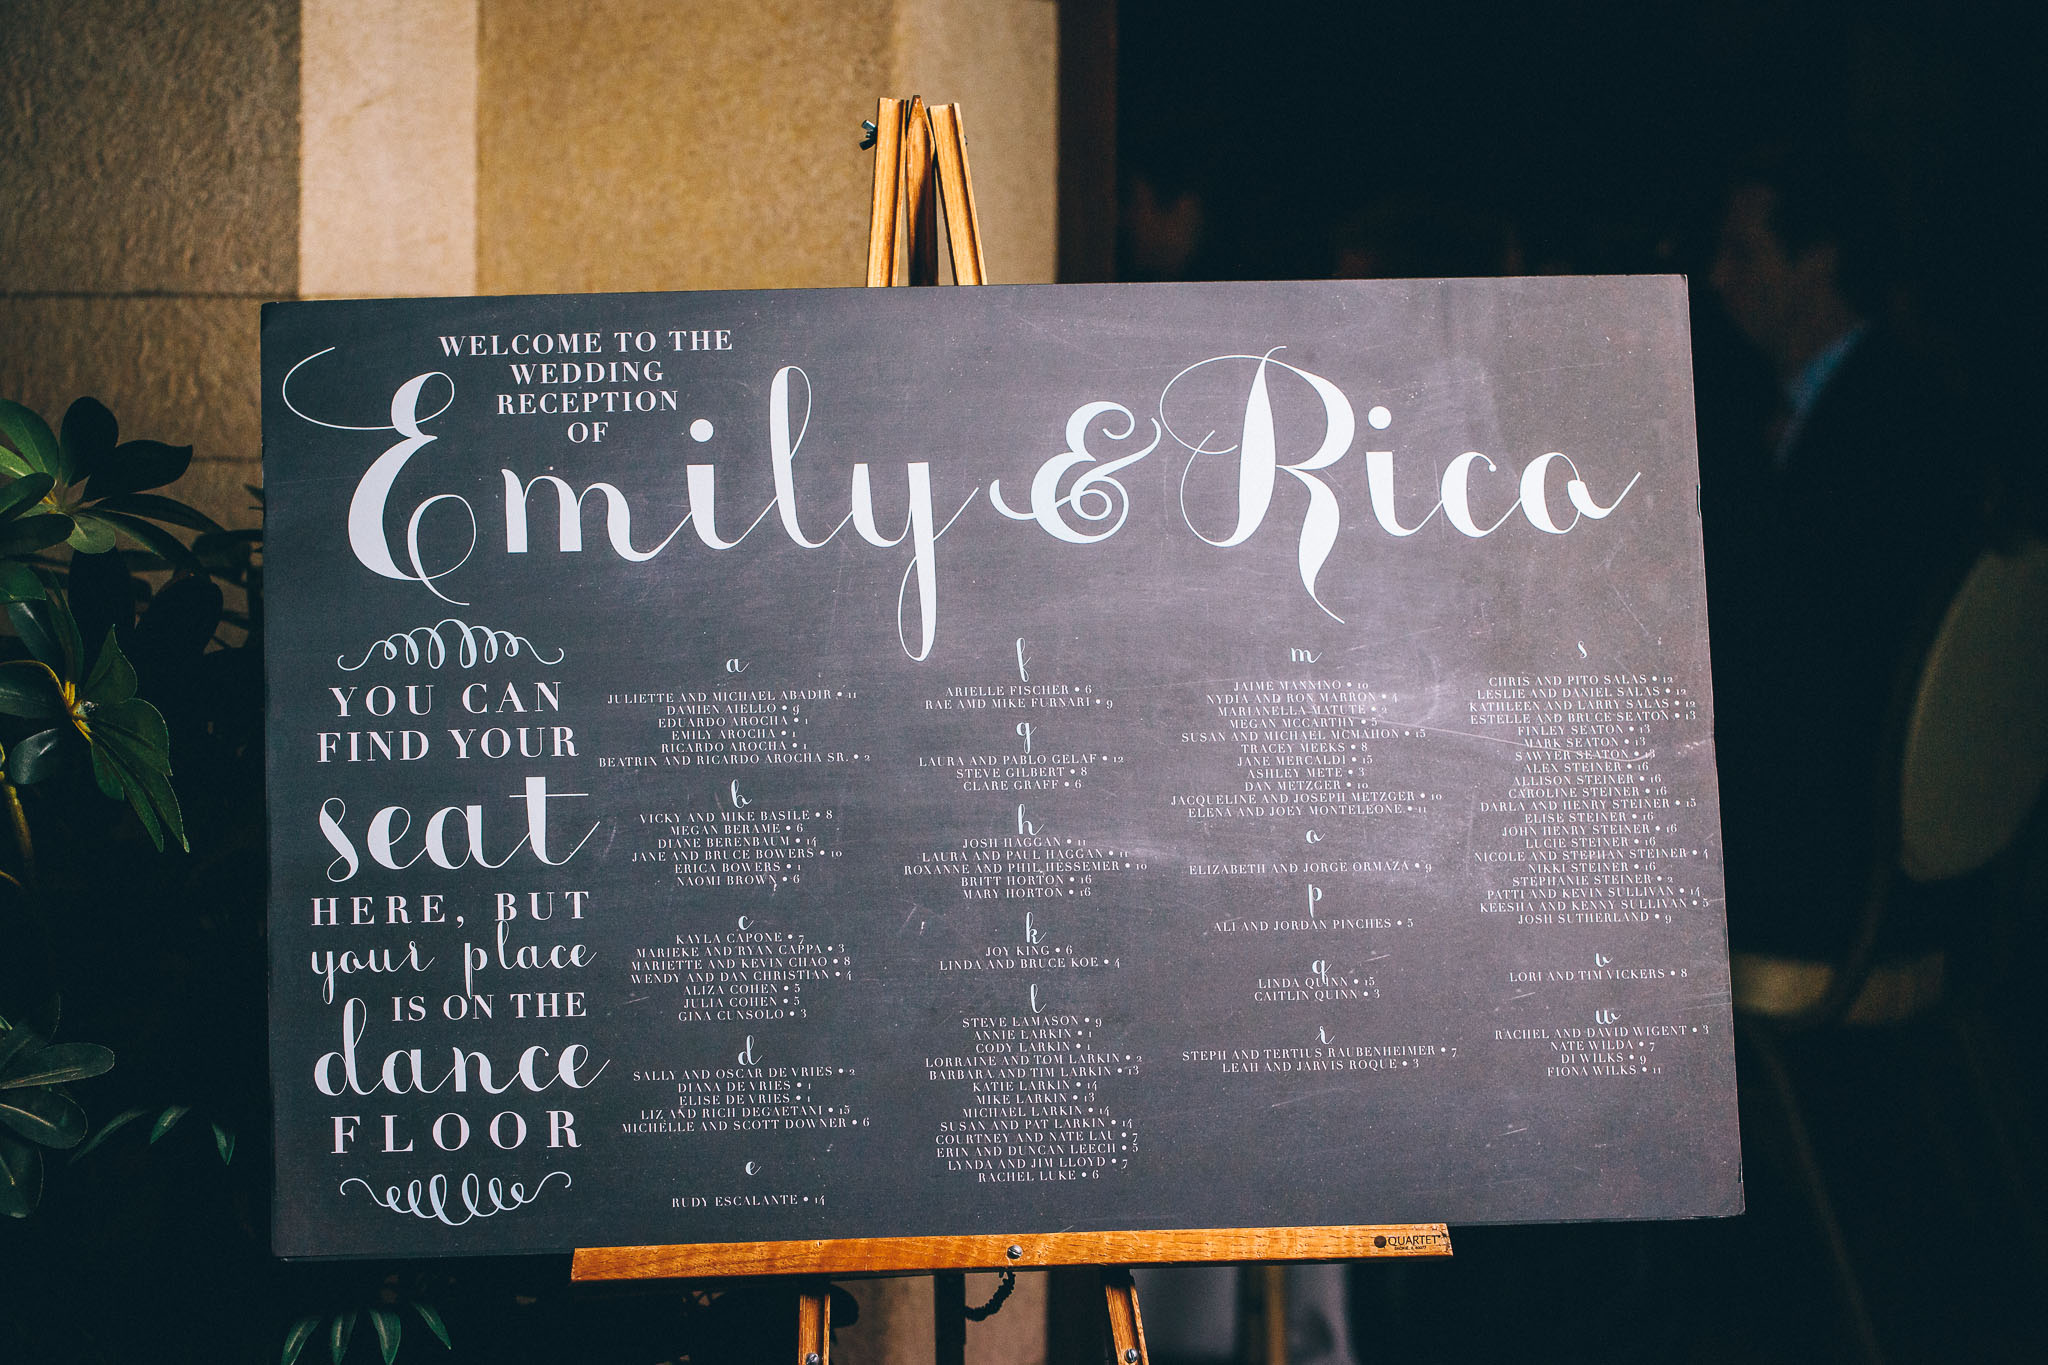 WELCOME TO THE
WEDDING
RECEPTION
OF
Emily & Rico
YOU CAN
FIND YOUR
seat
HERE, BUT
your place
IS ON THE
dance
FLOOR
a
JULIETTE AND MICHAEL ABADIR • 11
DAMIEN AIELLO • 9
EDUARDO AROCHA • 1
EMILY AROCHA • 1
RICARDO AROCHA • 1
BEATRIX AND RICARDO AROCHA SR. • 2
b
VICKY AND MIKE BASILE • 8
MEGAN BERAME • 6
DIANE BERENBAUM • 14
JANE AND BRUCE BOWERS • 10
ERICA BOWERS • 1
NAOMI BROWN • 6
c
KAYLA CAPONE • 7
MARIEKE AND RYAN CAPPA • 3
MARIETTE AND KEVIN CHAO • 8
WENDY AND DAN CHRISTIAN • 4
ALIZA COHEN • 5
JULIA COHEN • 5
GINA CUNSOLO • 3
d
SALLY AND OSCAR DE VRIES • 2
DIANA DE VRIES • 1
ELISE DE VRIES • 1
LIZ AND RICH DEGAETANI • 15
MICHELLE AND SCOTT DOWNER • 6
e
RUDY ESCALANTE • 14
f
ARIELLE FISCHER • 6
RAE AMD MIKE FURNARI • 9
g
LAURA AND PABLO GELAF • 12
STEVE GILBERT • 8
CLARE GRAFF • 6
h
JOSH HAGGAN • 11
LAURA AND PAUL HAGGAN • 11
ROXANNE AND PHIL HESSEMER • 10
BRITT HORTON • 16
MARY HORTON • 16
k
JOY KING • 6
LINDA AND BRUCE KOE • 4
l
STEVE LAMASON • 9
ANNIE LARKIN • 1
CODY LARKIN • 1
LORRAINE AND TOM LARKIN • 2
BARBARA AND TIM LARKIN • 13
KATIE LARKIN • 14
MIKE LARKIN • 13
MICHAEL LARKIN • 14
SUSAN AND PAT LARKIN • 14
COURTNEY AND NATE LAU • 7
ERIN AND DUNCAN LEECH • 5
LYNDA AND JIM LLOYD • 7
RACHEL LUKE • 6
m
JAIME MANNINO • 10
NYDIA AND RON MARRON • 4
MARIANELLA MATUTE • 2
MEGAN MCCARTHY • 5
SUSAN AND MICHAEL MCMAHON • 15
TRACEY MEEKS • 8
JANE MERCALDI • 15
ASHLEY METE • 3
DAN METZGER • 10
JACQUELINE AND JOSEPH METZGER • 10
ELENA AND JOEY MONTELEONE • 11
o
ELIZABETH AND JORGE ORMAZA • 9
p
ALI AND JORDAN PINCHES • 5
q
LINDA QUINN • 15
CAITLIN QUINN • 3
r
STEPH AND TERTIUS RAUBENHEIMER • 7
LEAH AND JARVIS ROQUE • 3
s
CHRIS AND PITO SALAS • 12
LESLIE AND DANIEL SALAS • 12
KATHLEEN AND LARRY SALAS • 12
ESTELLE AND BRUCE SEATON • 13
FINLEY SEATON • 13
MARK SEATON • 13
SAWYER SEATON • 13
ALEX STEINER • 16
ALLISON STEINER • 16
CAROLINE STEINER • 16
DARLA AND HENRY STEINER • 15
ELISE STEINER • 16
JOHN HENRY STEINER • 16
LUCIE STEINER • 16
NICOLE AND STEPHAN STEINER • 4
NIKKI STEINER • 16
STEPHANIE STEINER • 2
PATTI AND KEVIN SULLIVAN • 14
KEESHA AND KENNY SULLIVAN • 5
JOSH SUTHERLAND • 9
v
LORI AND TIM VICKERS • 8
w
RACHEL AND DAVID WIGENT • 3
NATE WILDA • 7
DI WILKS • 9
FIONA WILKS • 11
QUARTET